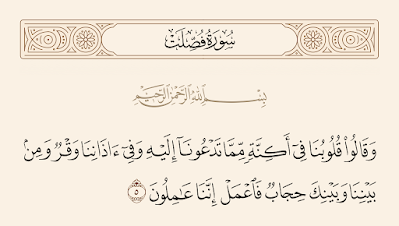 سُورَةُ فُصِّلَتْ
بِسْمِ اللَّهِ الرَّحْمَٰنِ الرَّحِيمِ
وَقَالُوا۟ قُلُوبُنَا فِىٓ أَكِنَّةٍ مِّمَّا تَدْعُونَآ إِلَيْهِ وَفِىٓ ءَاذَانِنَا وَقْرٌ وَمِنۢ
بَيْنِنَا وَبَيْنِكَ حِجَابٌ فَٱعْمَلْ إِنَّنَا عَٰمِلُونَ ٥